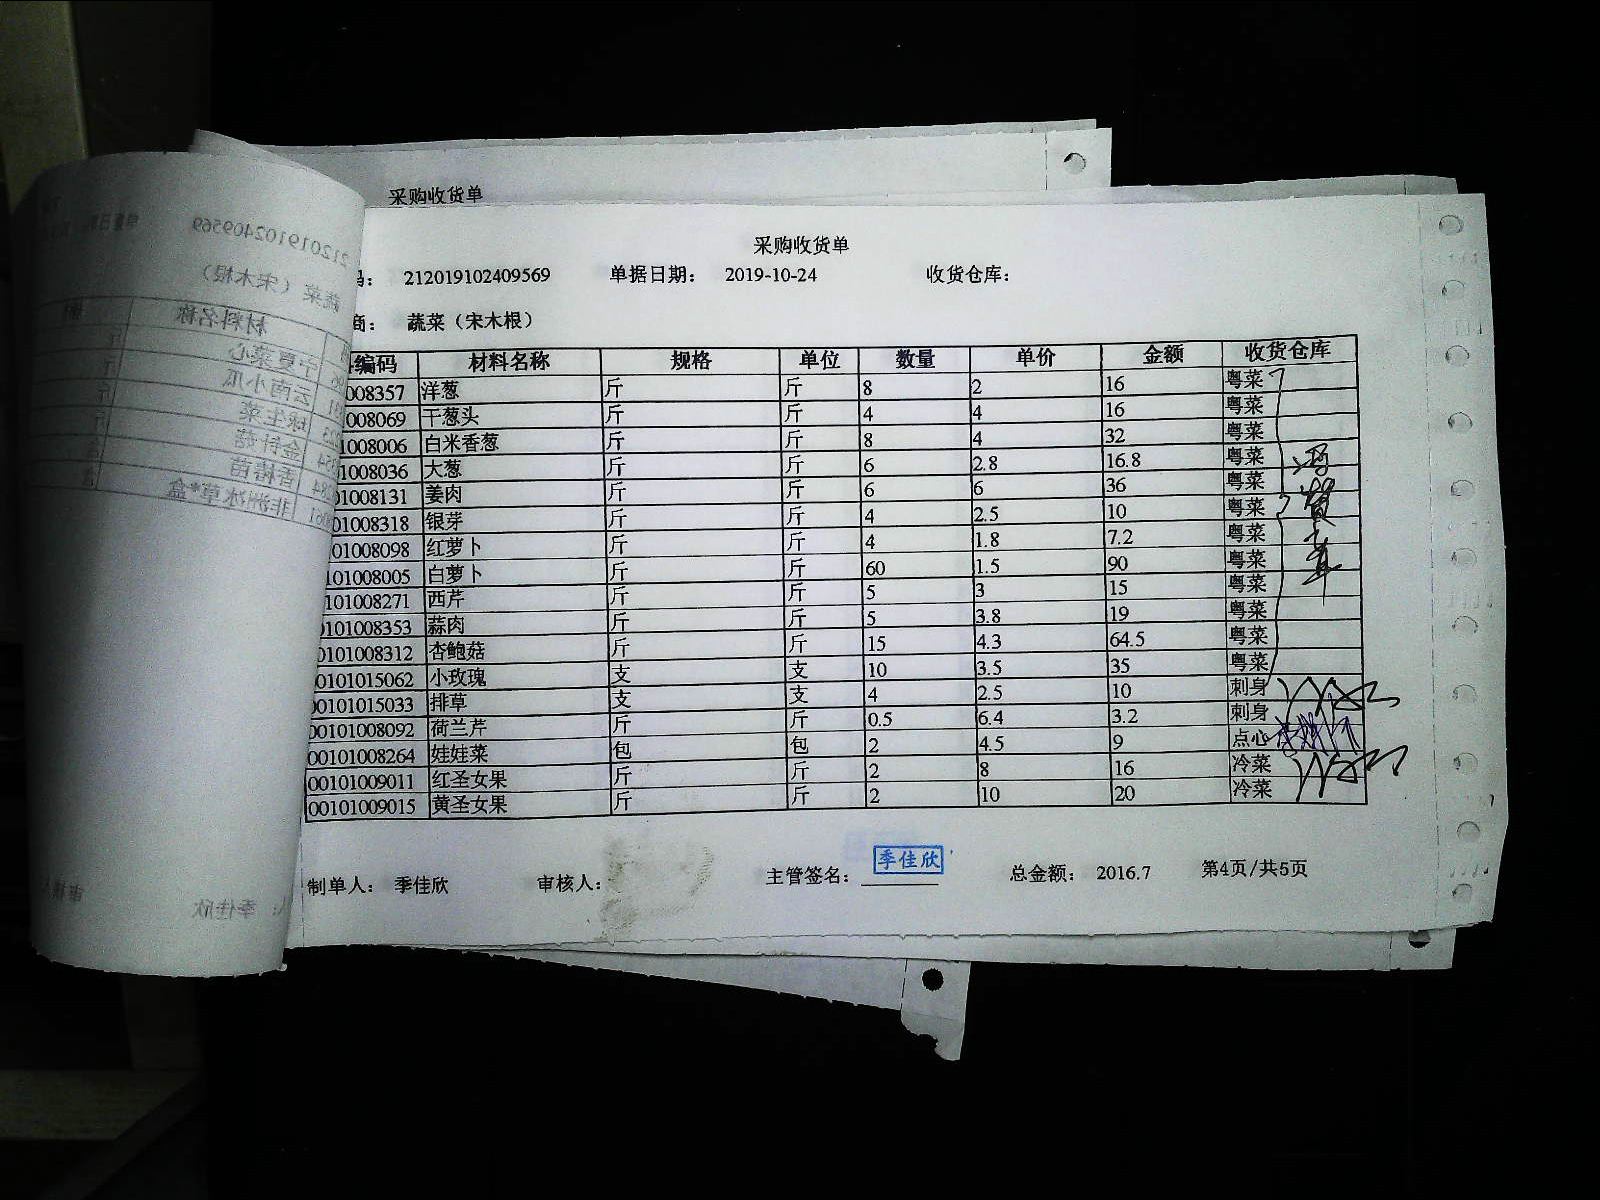 采购收货单
采购收货单
码： 212019102409569 单据日期： 2019-10-24 收货仓库：
商： 蔬菜（宋木根）
编码 材料名称 规格 单位 数量 单价 金额 收货仓库
008357 洋葱 斤 斤 8 2 16 粤菜
008069 干葱头 斤 斤 4 4 16 粤菜
1008006 白米香葱 斤 斤 8 4 32 粤菜
1008036 大葱 斤 斤 6 2.8 16.8 粤菜
01008131 姜肉 斤 斤 6 6 36 粤菜
01008318 银芽 斤 斤 4 2.5 10 粤菜
01008098 红萝卜 斤 斤 4 1.8 7.2 粤菜
101008005 白萝卜 斤 斤 60 1.5 90 粤菜
101008271 西芹 斤 斤 5 3 15 粤菜
0101008353 蒜肉 斤 斤 5 3.8 19 粤菜
0101008312 杏鲍菇 斤 斤 15 4.3 64.5 粤菜
00101015062 小玫瑰 支 支 10 3.5 35 粤菜
00101015033 排草 支 支 4 2.5 10 刺身
00101008092 荷兰芹 斤 斤 0.5 6.4 3.2 刺身
00101008264 娃娃菜 包 包 2 4.5 9 点心
00101009011 红圣女果 斤 斤 2 8 16 冷菜
00101009015 黄圣女果 斤 斤 2 10 20 冷菜
制单人： 季佳欣 审核人： 主管签名： 季佳欣 总金额： 2016.7 第4页/共5页